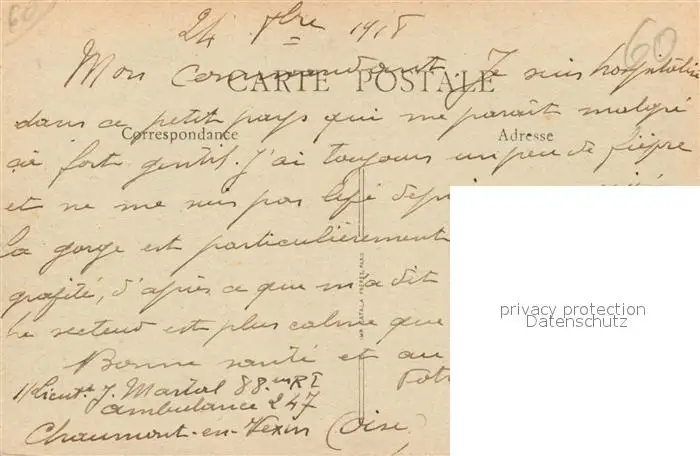 60
24 8bre 1918
60
Mon Commandant. Je suis hospitalisé
CARTE POSTALE
dans ce petit pays qui me paraît malgré
Correspondance
Adresse
fort gentil. J'ai toujours un peu de fièvre
et ne me suis pas
la gorge est particulièrement
d'après ce que m'a dit
le secteur est plus calme que
Bonne santé et au
Votr
S/Lieut. J. Martal 88me RI
ambulance 247
Chaumont-en-Vexin (Oise)
IMP. CATALA FRÈRES, PARIS
privacy protection
Datenschutz